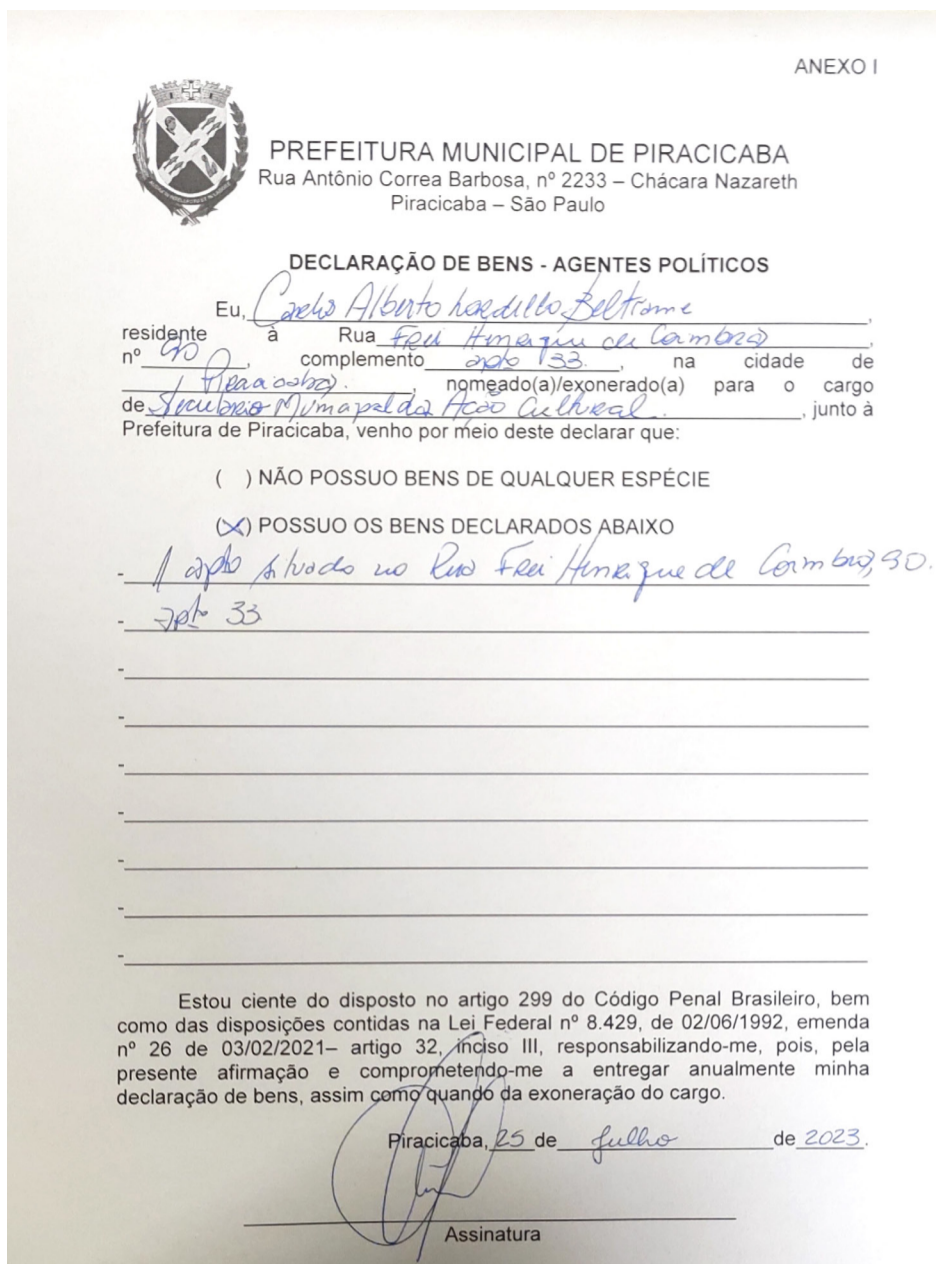 ANEXO I
PREFEITURA MUNICIPAL DE PIRACICABA
Rua Antônio Correa Barbosa, nº 2233 – Chácara Nazareth
Piracicaba – São Paulo
DECLARAÇÃO DE BENS - AGENTES POLÍTICOS
Eu, Carlos Alberto Lordello Beltrame,
residente à Rua Frei Henrique de Coimbra,
nº 90, complemento apto 33, na cidade de
Piracicaba., nomeado(a)/exonerado(a) para o cargo
de Secretário Municipal da Ação Cultural., junto à
Prefeitura de Piracicaba, venho por meio deste declarar que:
( ) NÃO POSSUO BENS DE QUALQUER ESPÉCIE
(X) POSSUO OS BENS DECLARADOS ABAIXO
- 1 apto situado na Rua Frei Henrique de Coimbra, 90.
- apto 33
-
-
-
-
-
-
-
Estou ciente do disposto no artigo 299 do Código Penal Brasileiro, bem
como das disposições contidas na Lei Federal nº 8.429, de 02/06/1992, emenda
nº 26 de 03/02/2021– artigo 32, inciso III, responsabilizando-me, pois, pela
presente afirmação e comprometendo-me a entregar anualmente minha
declaração de bens, assim como quando da exoneração do cargo.
Piracicaba, 25 de Julho de 2023.
Assinatura